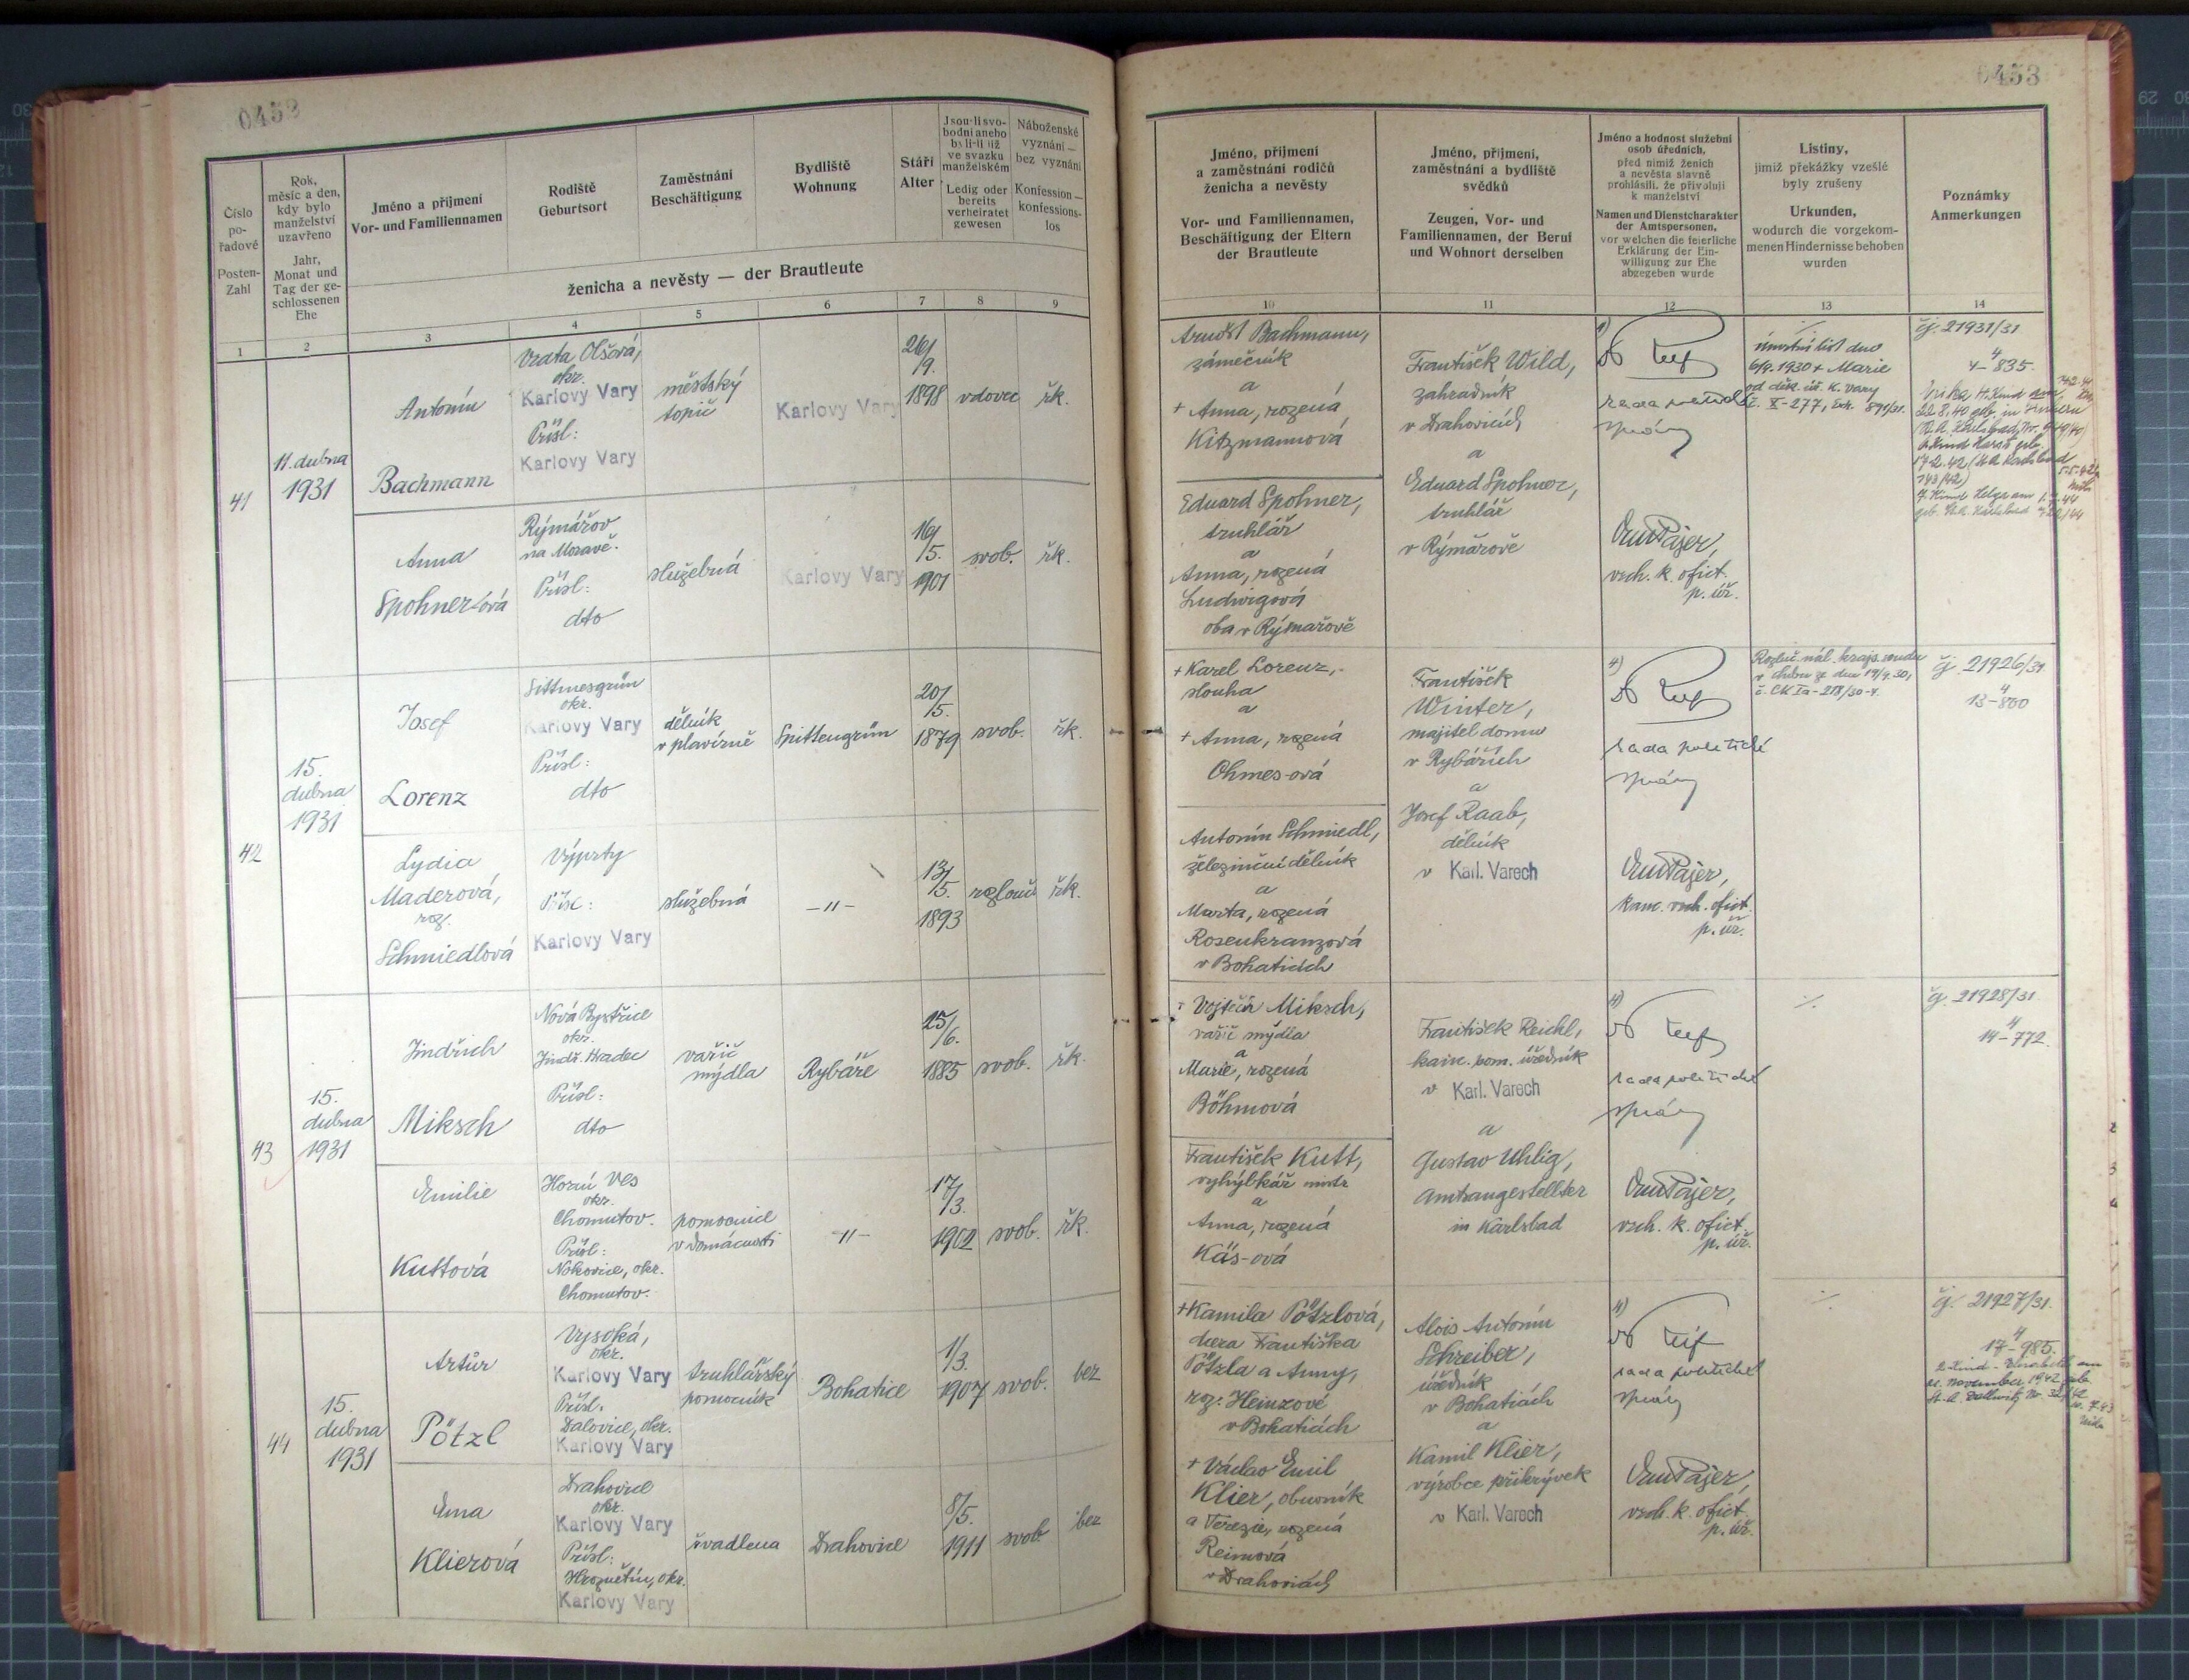 0453
0453
Číslo pořadové
Posten-Zahl
Rok, měsíc a den, kdy bylo manželství uzavřeno
Jahr, Monat und Tag der geschlossenen Ehe
Jméno a příjmení
Vor- und Familiennamen
Rodiště
Geburtsort
Zaměstnání
Beschäftigung
Bydliště
Wohnung
Stáří
Alter
Jsou-li svobodni anebo byli-li již ve svazku manželském
Ledig oder bereits verheiratet gewesen
Náboženské vyznání — bez vyznání
Konfession — konfessionslos
ženicha a nevěsty — der Brautleute
1 2 3 4 5 6 7 8 9
41
11. dubna
1931
Antonín
Bachmann
Vrata Olšová,
okr.
Karlovy Vary
Přísl:
Karlovy Vary
městský
topič
Karlovy Vary
26/
9.
1898
vdovec
řk.
Anna
Spohner-ová
Rýmařov
na Moravě.
Přísl:
dto
služebná
Karlovy Vary
16/
5.
1901
svob.
řk.
42
15.
dubna
1931
Josef
Lorenz
Sittmesgrün
okr.
Karlovy Vary
Přísl:
dto
dělník
v plavírně
Spittengrün
20/
5.
1879
svob.
řk.
Lydia
Maderová,
roz.
Schmiedlová
Výprty
Přísl:
Karlovy Vary
služebná
-"-
13/
5.
1893
rozlouč.
řk.
43
15.
dubna
1931
Jindřich
Miksch
Nová Bystřice
okr.
Jindř. Hradec
Přísl:
dto
vařič
mýdla
Rybáře
25/
6.
1885
svob.
řk.
Emilie
Kuttová
Horní Ves
okr.
Chomutov.
Přísl:
Nokovice, okr.
Chomutov.
pomocnice
v domácnosti
-"-
17/
3.
1902
svob.
řk.
44
15.
dubna
1931
Artur
Pötzl
Vysoká,
okr.
Karlovy Vary
Přísl.
Dalovice, okr.
Karlovy Vary
truhlářský
pomocník
Bohatice
1/
3.
1907
svob.
bez
Ema
Klierová
Drahovice
okr.
Karlovy Vary
Přísl:
Hroznětín, okr.
Karlovy Vary
švadlena
Drahovice
8/
5.
1911
svob
bez
Jméno, příjmení
a zaměstnání rodičů
ženicha a nevěsty
Vor- und Familiennamen,
Beschäftigung der Eltern
der Brautleute
Jméno, příjmení,
zaměstnání a bydliště
svědků
Zeugen, Vor- und
Familiennamen, der Beruf
und Wohnort derselben
Jméno a hodnost služební
osob úředních,
před nimiž ženich
a nevěsta slavně
prohlásili, že přivolují
k manželství
Namen und Dienstcharakter
der Amtspersonen,
vor welchen die feierliche
Erklärung der Ein-
willigung zur Ehe
abgegeben wurde
Listiny,
jimiž překážky vzešlé
byly zrušeny
Urkunden,
wodurch die vorgekom-
menen Hindernisse behoben
wurden
Poznámky
Anmerkungen
10 11 12 13 14
Arnošt Bachmann,
zámečník
a
+ Anna, rozená
Kitzmannová
Eduard Spohner,
truhlář
a
Anna, rozená
Ludwigová
oba v Rýmařově
František Wild,
zahradník
v Drahovicích
a
Eduard Spohner,
truhlář
v Rýmařově
rada politické
správy
vrch. k. ofict.
p. úř.
úmrtní list dno
6/9. 1930 + Marie
od děk. úř. K. Vary
č. X-277, Exh. 891/31.
čj. 21931/31
4
4-835.
+ Karel Lorenz,
slouha
a
+ Anna, rozená
Ohmes-ová
Antonín Schmiedl,
železniční dělník
a
Marta, rozená
Rosenkranzová
v Bohaticích
František
Winter,
majitel domu
v Rybářích
a
Josef Raab,
dělník
v Karl. Varech
rada politické
správy
kanc. vrch. ofict.
p. úř.
Rozluč. nál. krajs. soudu
v Chebu ze dne 19/9. 30,
č. CK Ia-218/30-4.
čj. 21926/31
4
13-860
+ Vojtěch Miksch,
vařič mýdla
a
Marie, rozená
Böhmová
František Kutt,
vyhýbkář mistr
a
Anna, rozená
Käs-ová
František Reichl,
kanc. pom. úředník
v Karl. Varech
a
Gustav Uhlig,
Amtsangestellter
in Karlsbad
rada politické
správy
vrch. k. ofict.
p. úř.
čj. 21928/31
4
14-772.
+ Kamila Pötzlová,
dcera Františka
Pötzla a Anny,
roz. Heinzové
v Bohaticích
+ Václav Emil
Klier, obuvník
a Terezie, rozená
Reimová
v Drahovicích
Alois Antonín
Schreiber,
úředník
v Bohaticích
a
Kamil Klier,
výrobce přikrývek
v Karl. Varech
rada politické
správy
vrch. k. ofict.
p. úř.
čj. 21927/31.
4
17-985.